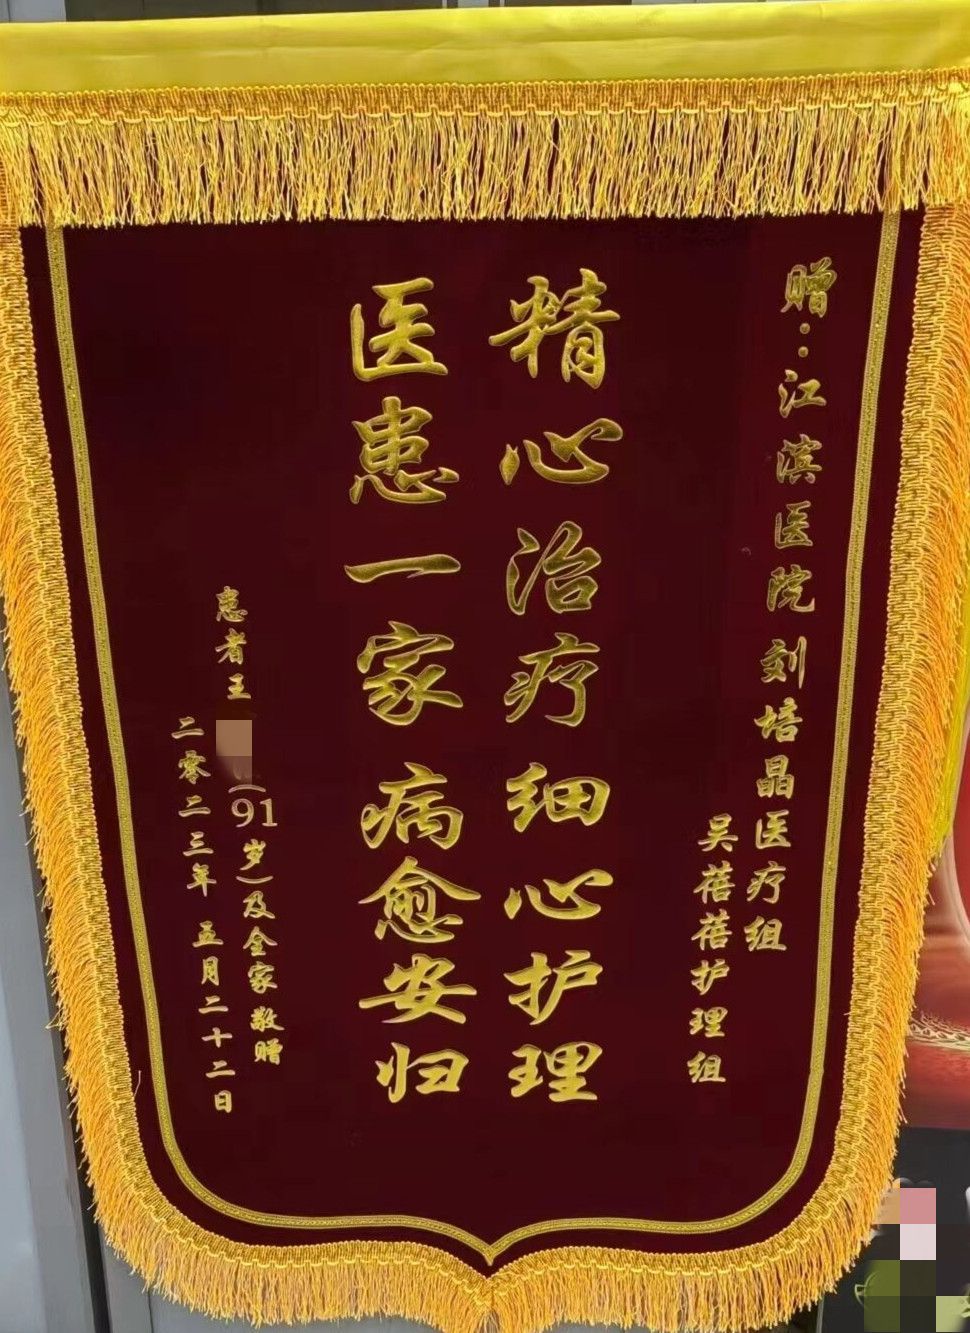 赠:江滨医院刘培晶医疗组
吴蓓蓓护理组
精心治疗细心护理
医患一家病愈安归
患者王(91岁)及全家敬赠
二零二三年五月二十二日